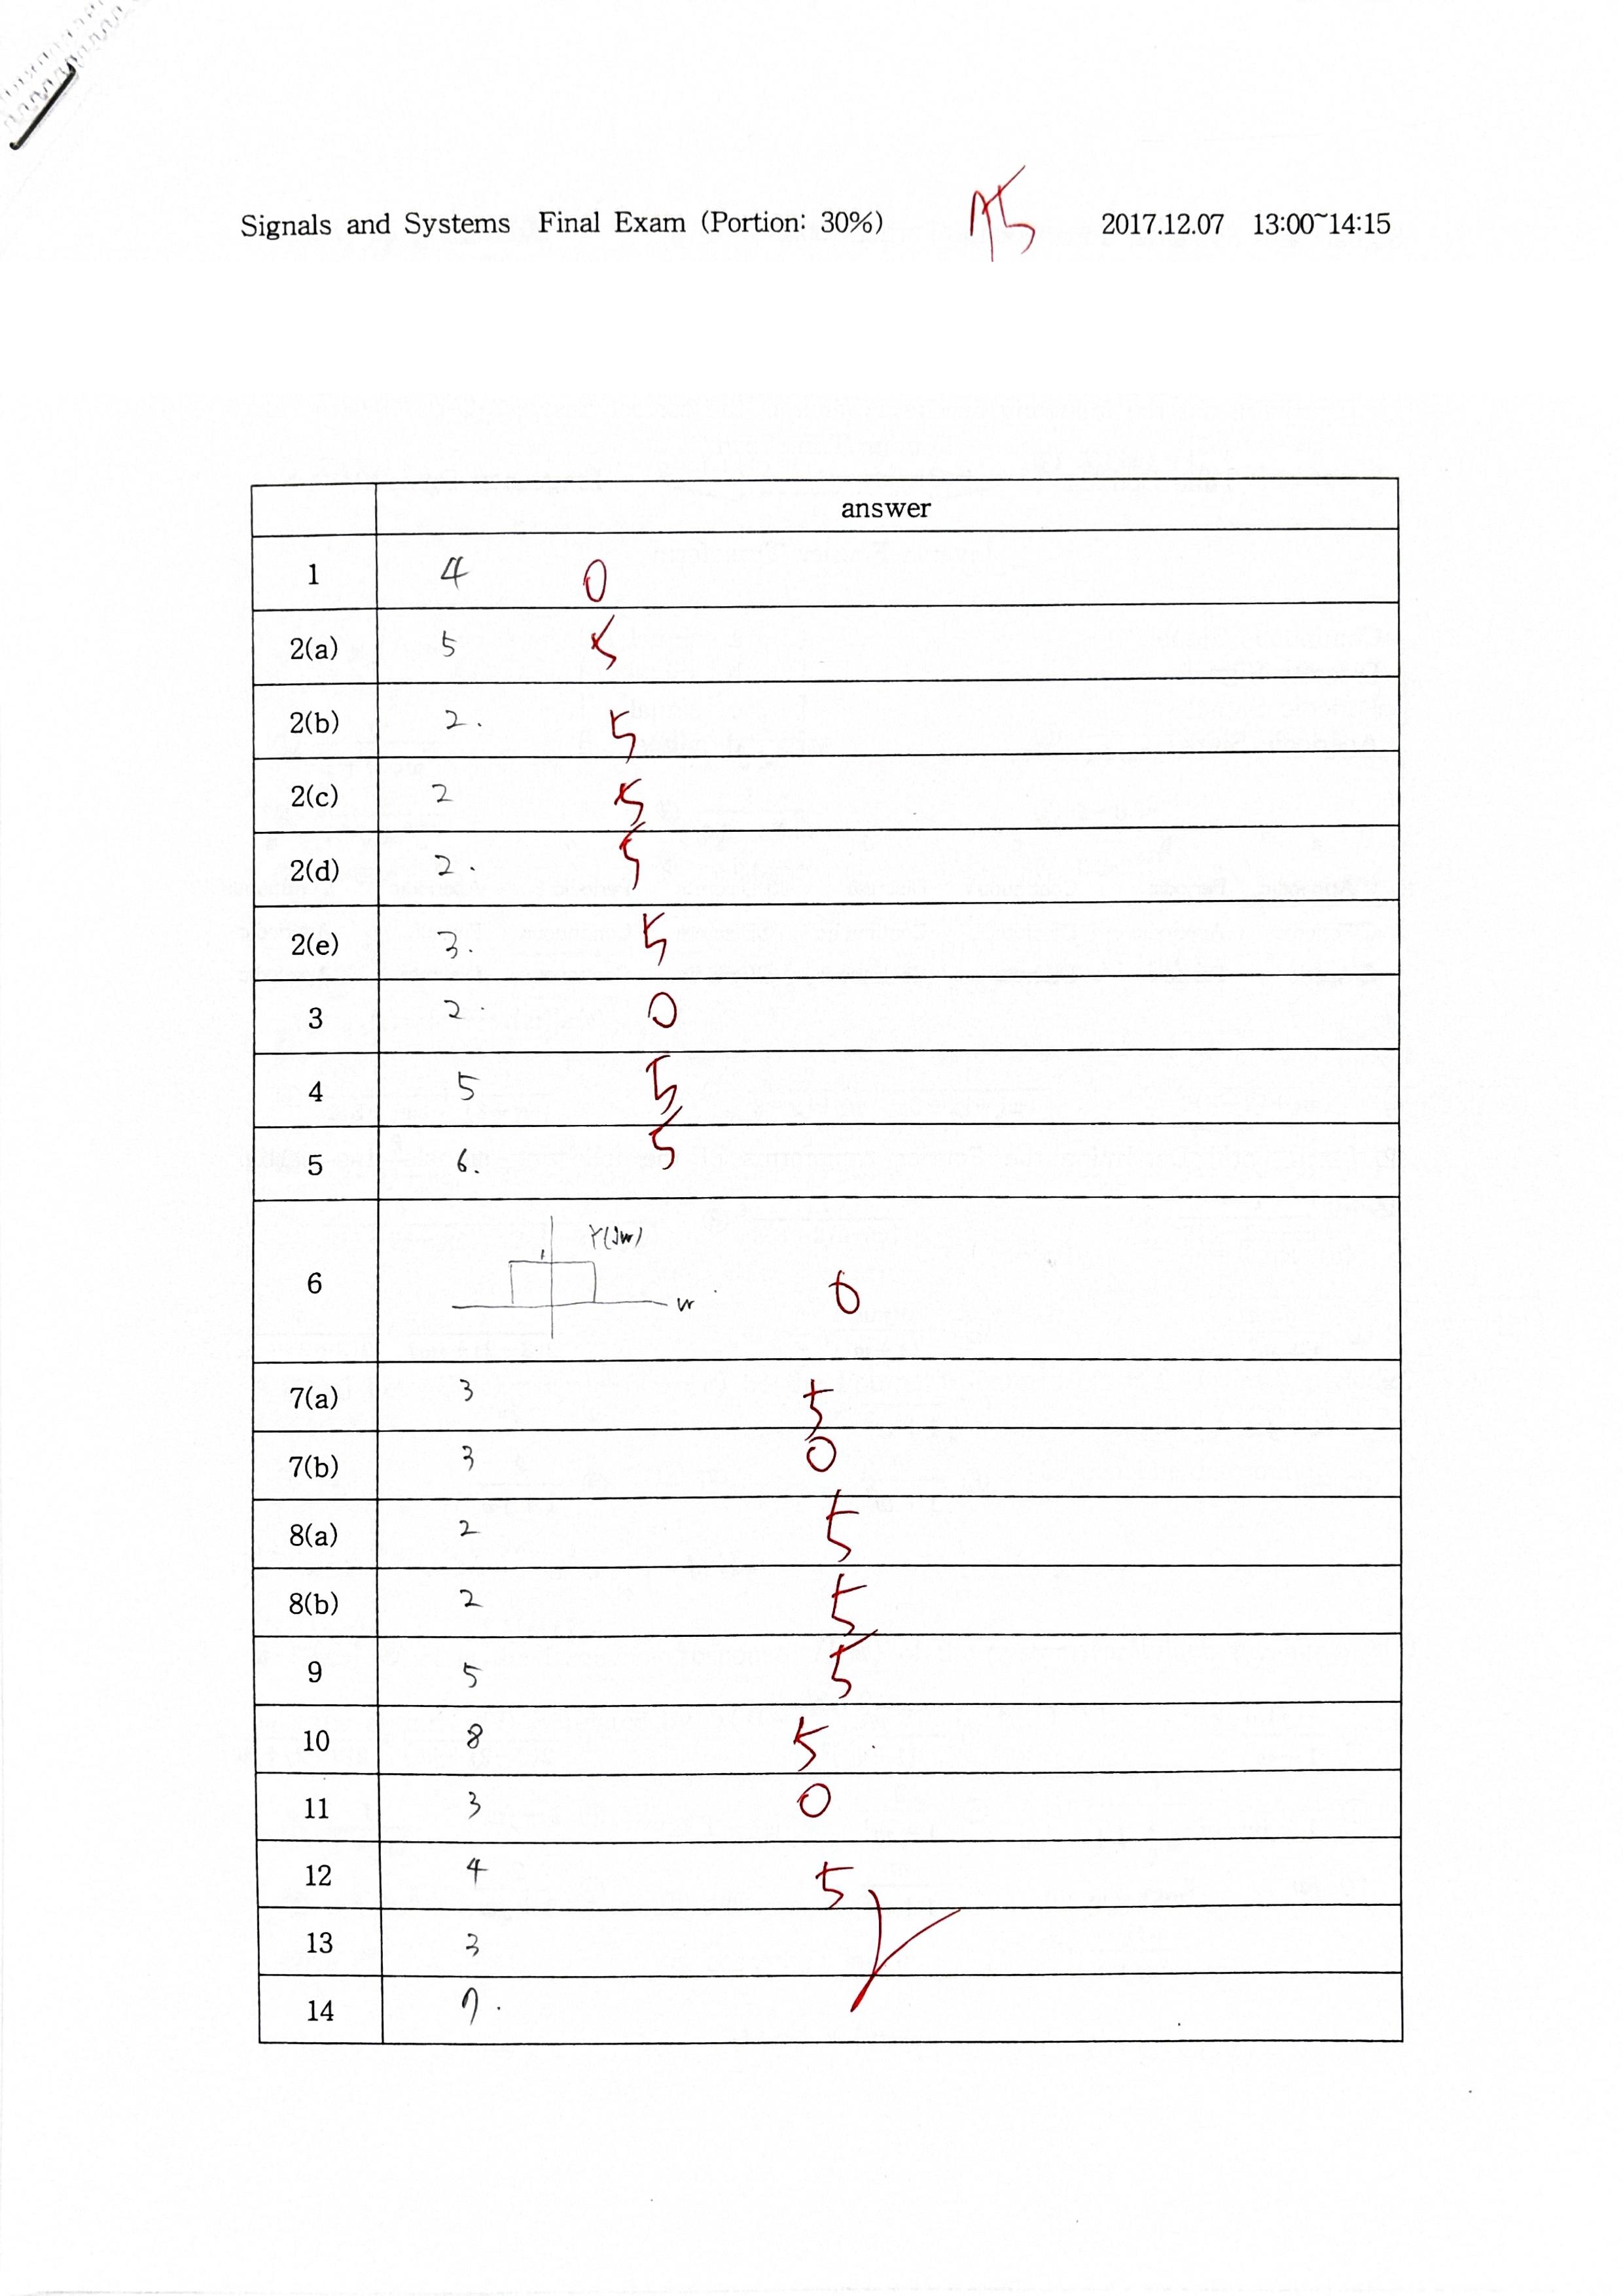 Signals and Systems Final Exam (Portion: 30%) 75 2017.12.07 13:00~14:15
answer
1 4 0
2(a) 5 5
2(b) 2. 5
2(c) 2 5
2(d) 2. 5
2(e) 3. 5
3 2. 0
4 5 5
5 6. 5
6 1 Y(Jw) w 0
7(a) 3 5
7(b) 3 0
8(a) 2 5
8(b) 2 5
9 5 5
10 8 5
11 3 0
12 4 5
13 3
14 7.